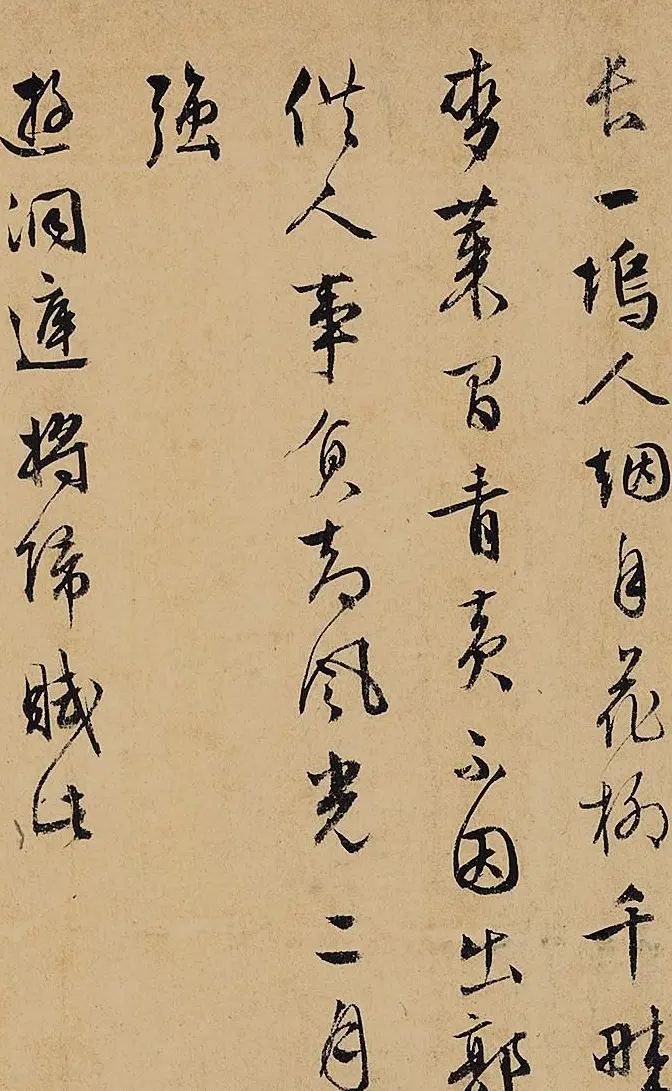 長一塢人烟自花柳千畦
麥菜間青黃不因出郭
供人事負却風光二月
強
遊洞庭將歸賦此